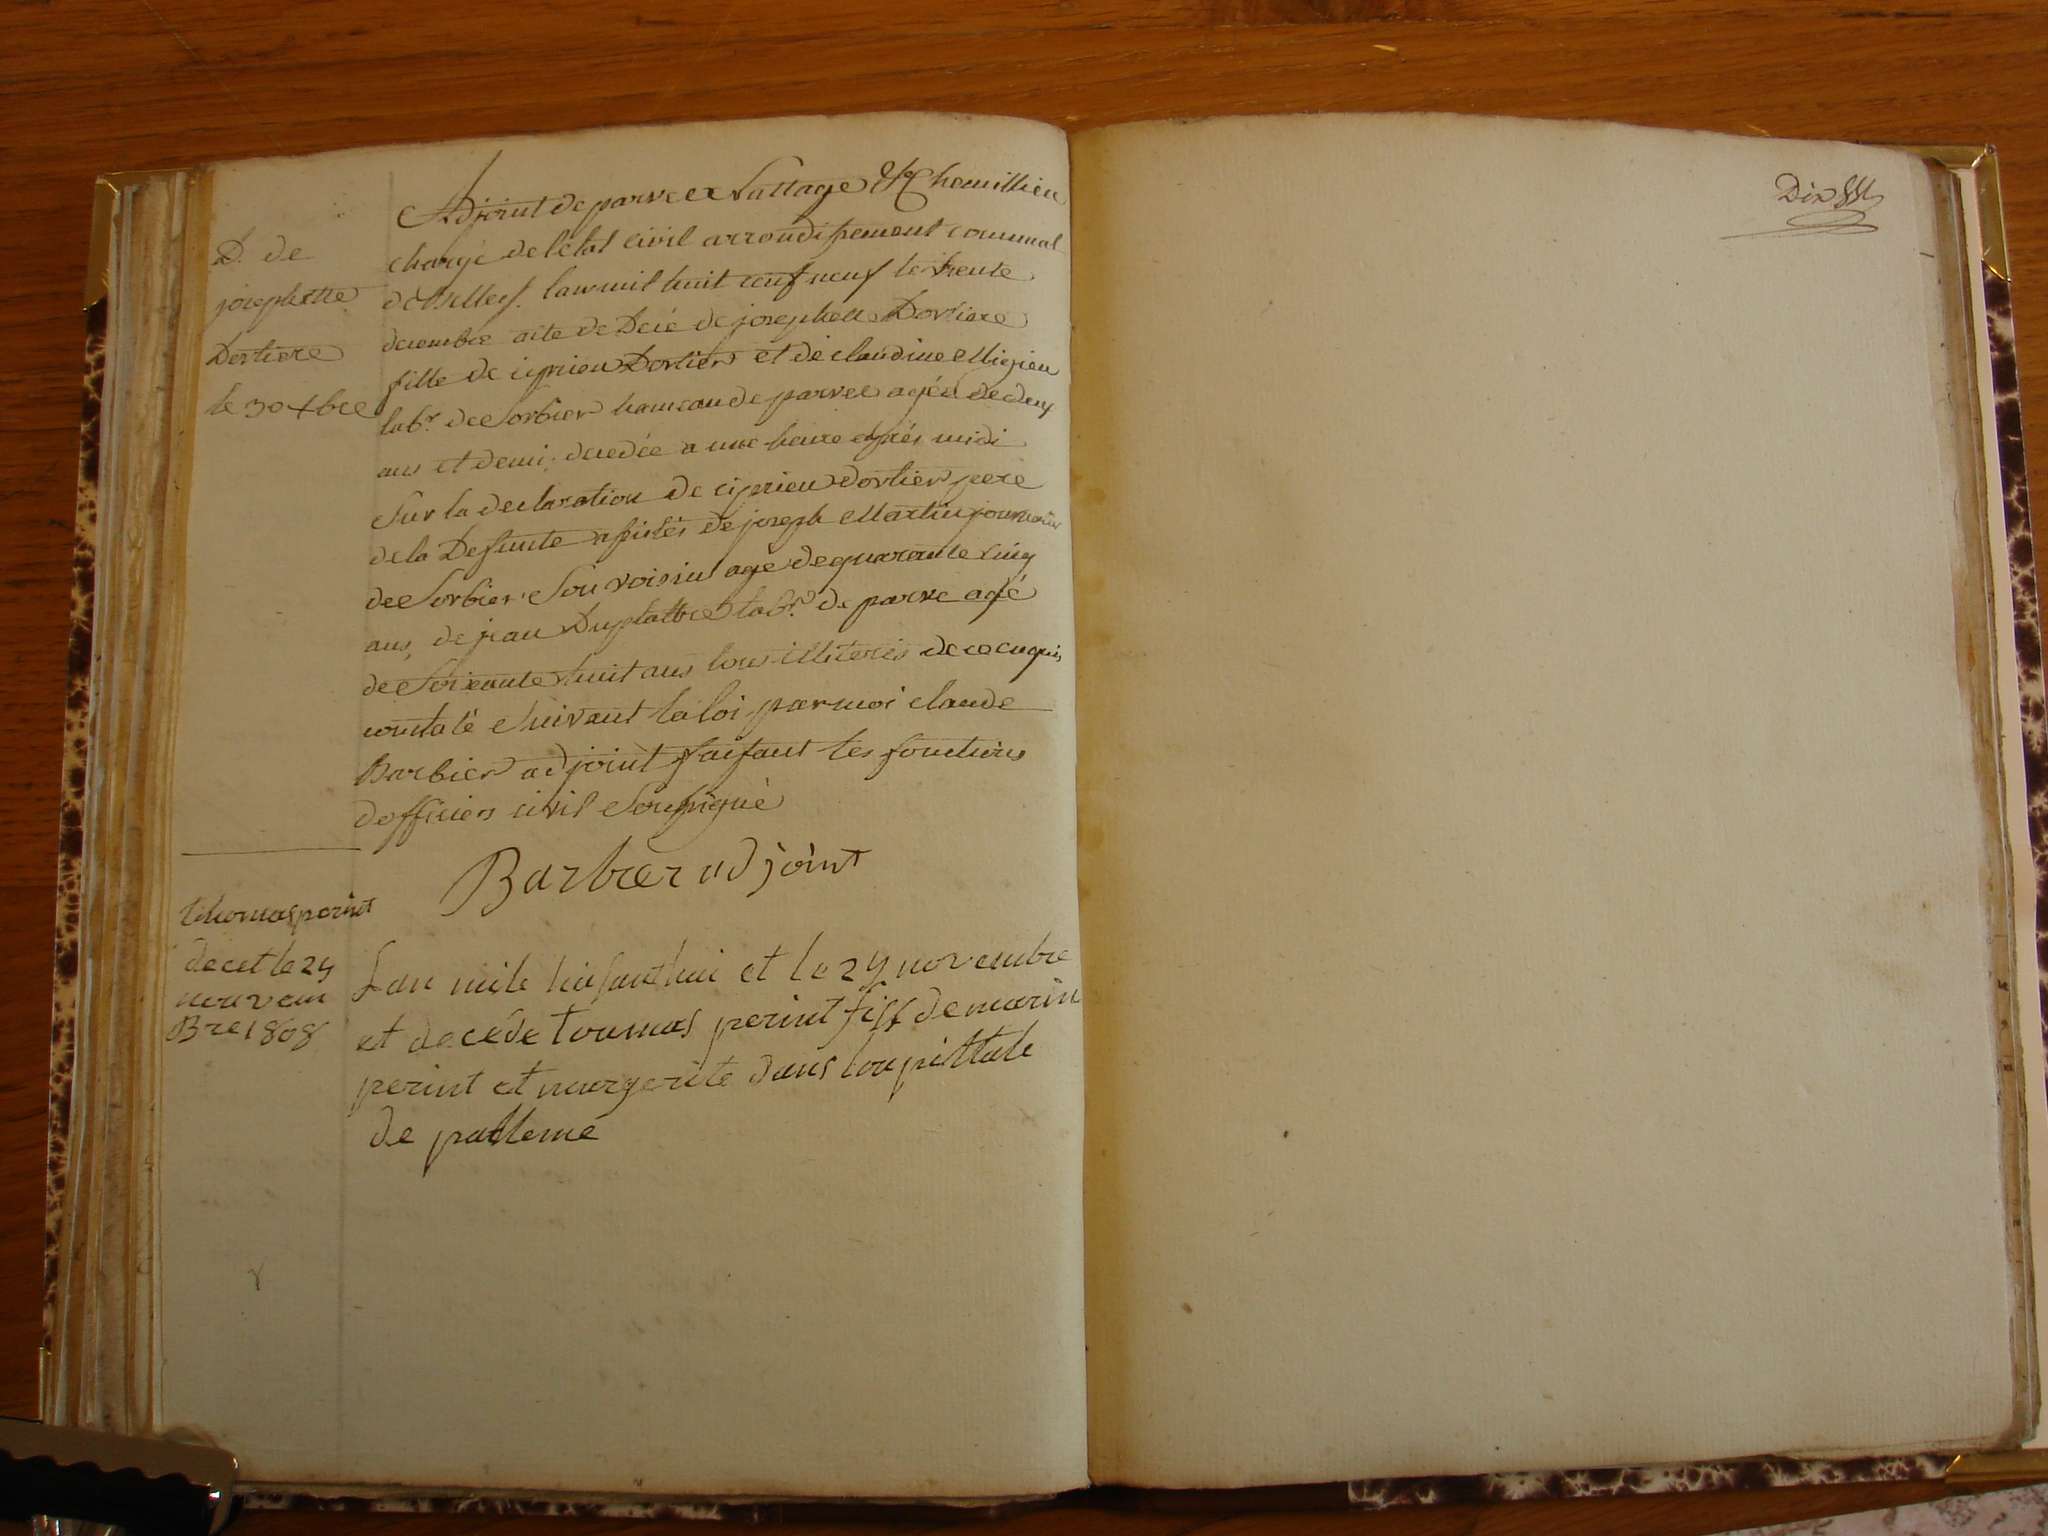 D. de
josephette
Dortiere
le 30 xbre
Adjoint de parve et Nattage & Chemillieu
chargé de l'état civil arrondissement communal
de Bellej. l'an mil huit cent neuf le trente
decembre acte de Décé de josephette Dortiere
fille de ciprien Dortier et de claudine Migieu
labr. de Sorbier hameau de parvee agéé de deux
ans et demi; decedée a une heure après midi
sur la declaration de ciprien dortier pere
de la Defunte assistés de joseph Martin journalier
de Sorbier son voisin agé de quarante cinq
ans, de jean Duplattre labr. de parve agé
de soixante huit ans tous illiterés de ce enquis
constaté suivant la loi par moi claude
Barbier adjoint faisant les fonctions
d'officier civil soussigné
Barbier adjoint
thomas perint
decet le 24
nouvem
Bre 1808
Lan mile huisant hui et le 24 novembre
et decéde toumas perint fiss de marin
perint et margerite dans loupittale
de palleme
Dix